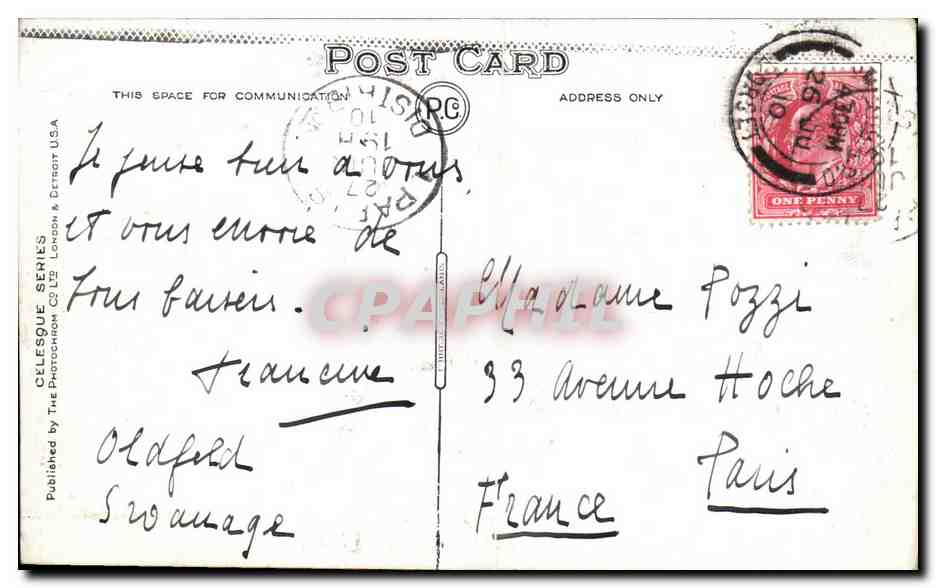 POST CARD
THIS SPACE FOR COMMUNICATION
ADDRESS ONLY
P.Co.
Je pense bien à vous
et vous envoie de
bons baisers.
Francine
Oldfeld
Swanage
Madame Pozzi
33 Avenue Hoche
Paris
France
ONE PENNY
26 JU
10
CELESQUE SERIES
Published by THE PHOTOCHROM CO LTD LONDON & DETROIT U.S.A
CPAPHIL